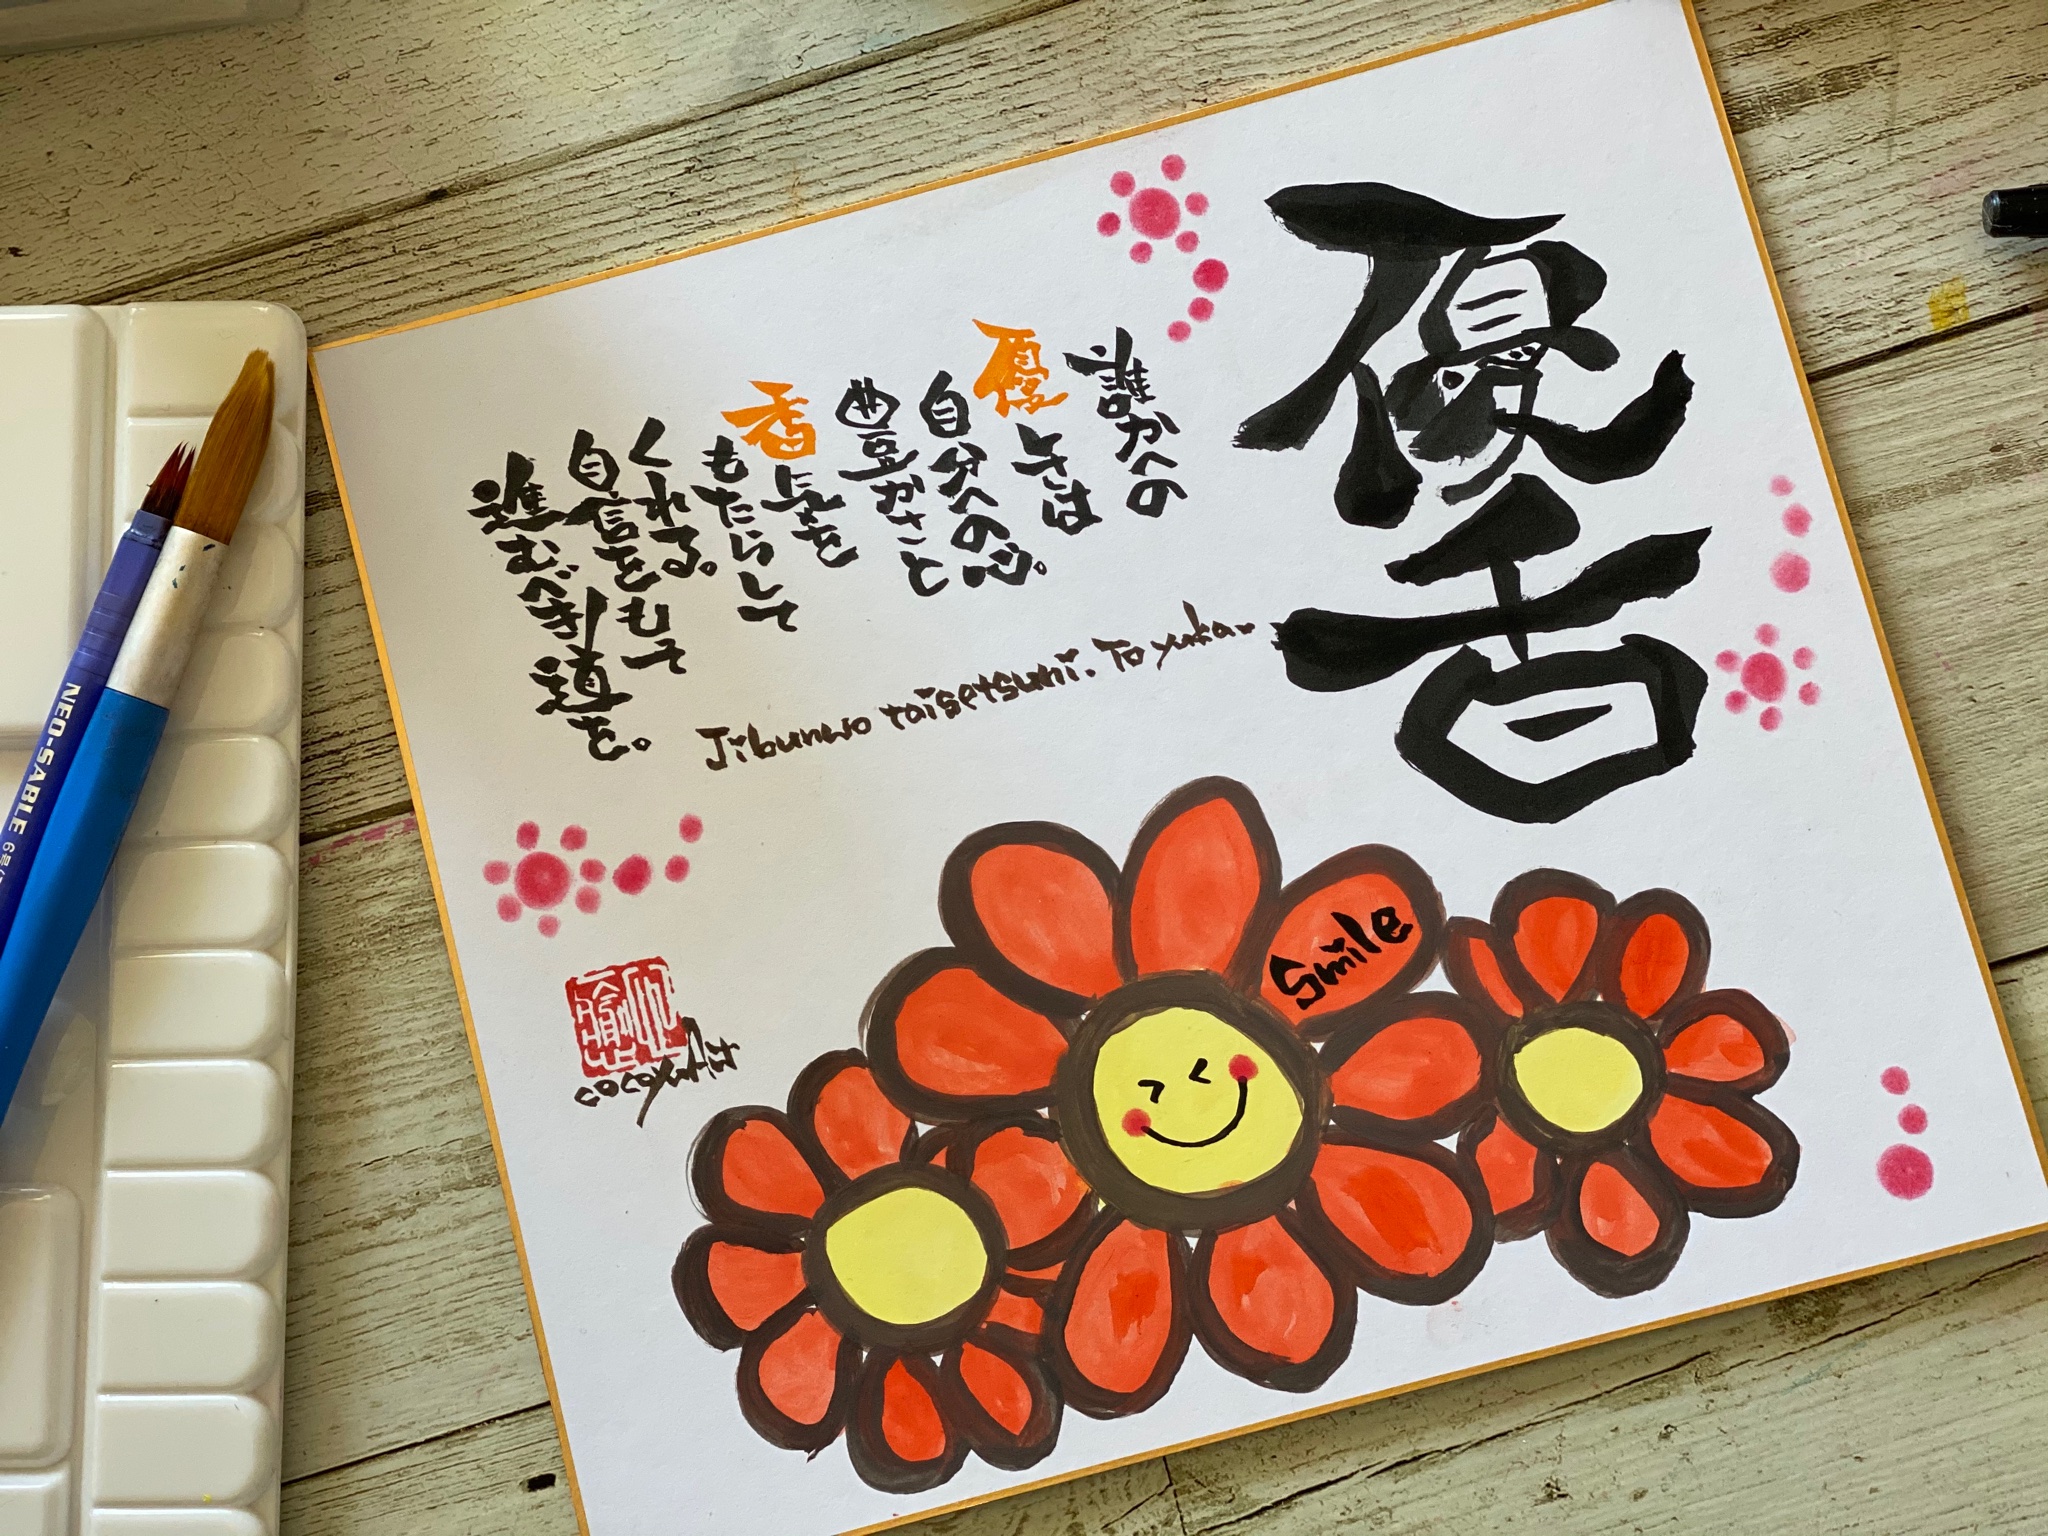 優香
誰かへの
優しさは
自分への心。
豊かさと
香気を
もたらして
くれる。
自信をもって
進むべき道を。
Jibunwo taisetsuni. To yuka
Smile
NEO-SABLE 6号